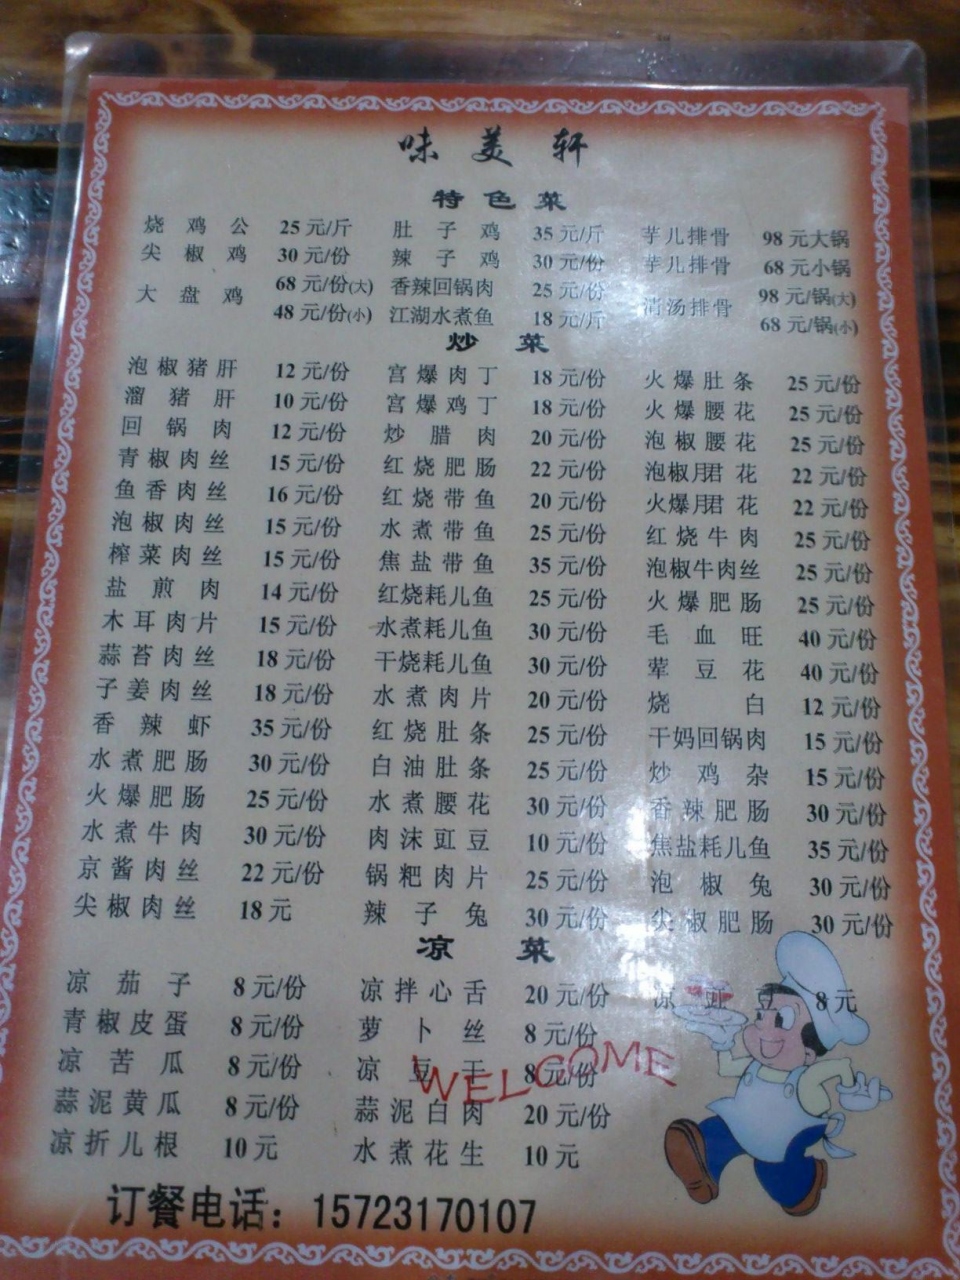 味美轩
特色菜
烧鸡公 25元/斤 肚子鸡 35元/斤 芋儿排骨 98元大锅
尖椒鸡 30元/份 辣子鸡 30元/份 芋儿排骨 68元小锅
大盘鸡 68元/份(大) 香辣回锅肉 25元/份 清汤排骨 98元/锅(大)
48元/份(小) 江湖水煮鱼 18元/斤 68元/锅(小)
炒菜
泡椒猪肝 12元/份 宫爆肉丁 18元/份 火爆肚条 25元/份
溜猪肝 10元/份 宫爆鸡丁 18元/份 火爆腰花 25元/份
回锅肉 12元/份 炒腊肉 20元/份 泡椒腰花 25元/份
青椒肉丝 15元/份 红烧肥肠 22元/份 泡椒月君花 22元/份
鱼香肉丝 16元/份 红烧带鱼 20元/份 火爆月君花 22元/份
泡椒肉丝 15元/份 水煮带鱼 25元/份 红烧牛肉 25元/份
榨菜肉丝 15元/份 焦盐带鱼 35元/份 泡椒牛肉丝 25元/份
盐煎肉 14元/份 红烧耗儿鱼 25元/份 火爆肥肠 25元/份
木耳肉片 15元/份 水煮耗儿鱼 30元/份 毛血旺 40元/份
蒜苔肉丝 18元/份 干烧耗儿鱼 30元/份 荤豆花 40元/份
子姜肉丝 18元/份 水煮肉片 20元/份 烧白 12元/份
香辣虾 35元/份 红烧肚条 25元/份 干妈回锅肉 15元/份
水煮肥肠 30元/份 白油肚条 25元/份 炒鸡杂 15元/份
火爆肥肠 25元/份 水煮腰花 30元/份 香辣肥肠 30元/份
水煮牛肉 30元/份 肉沫豇豆 10元/份 焦盐耗儿鱼 35元/份
京酱肉丝 22元/份 锅粑肉片 25元/份 泡椒兔 30元/份
尖椒肉丝 18元 辣子兔 30元/份 尖椒肥肠 30元/份
凉菜
凉茄子 8元/份 凉拌心舌 20元/份 凉豇豆 8元
青椒皮蛋 8元/份 萝卜丝 8元/份
凉苦瓜 8元/份 凉豆干 8元/份
WELCOME
蒜泥黄瓜 8元/份 蒜泥白肉 20元/份
凉折儿根 10元 水煮花生 10元
订餐电话：15723170107